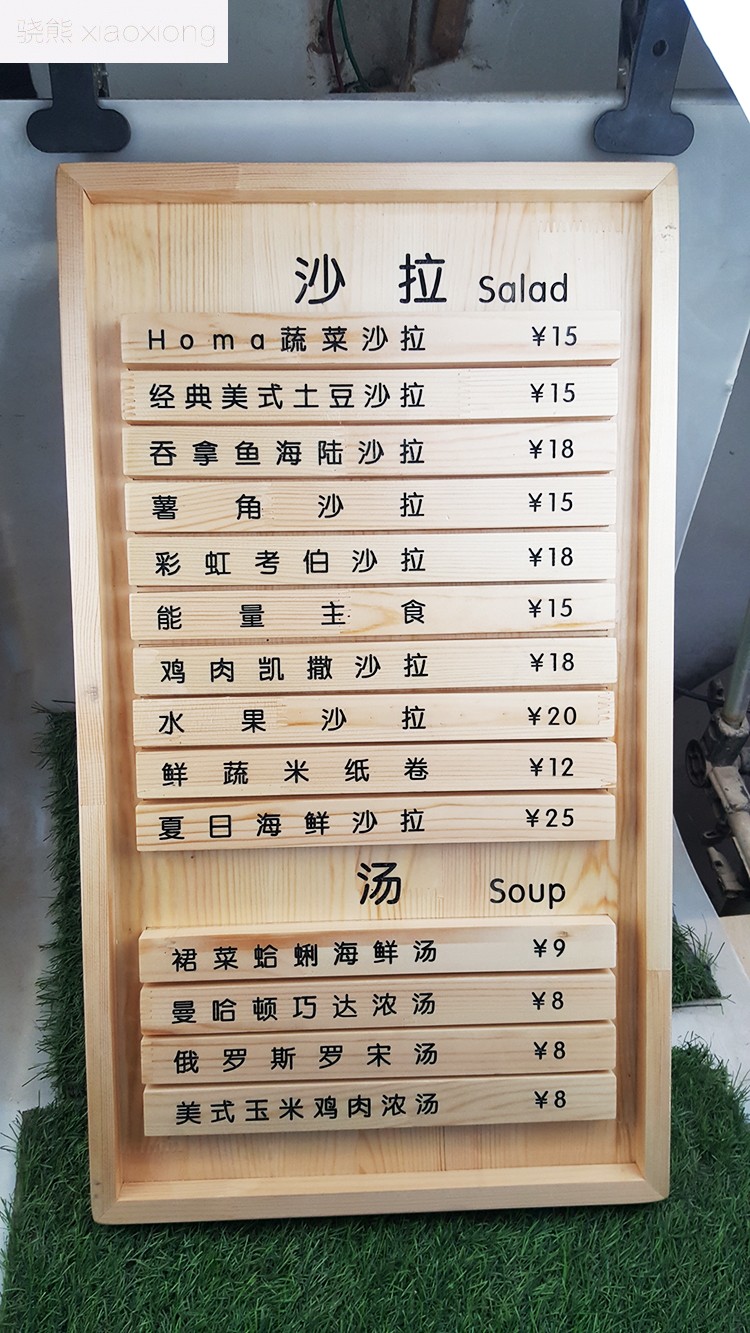 骁熊 xiaoxiong
沙拉 Salad
Homa蔬菜沙拉 ¥15
经典美式土豆沙拉 ¥15
吞拿鱼海陆沙拉 ¥18
薯角沙拉 ¥15
彩虹考伯沙拉 ¥18
能量主食 ¥15
鸡肉凯撒沙拉 ¥18
水果沙拉 ¥20
鲜蔬米纸卷 ¥12
夏日海鲜沙拉 ¥25
汤 Soup
裙菜蛤蜊海鲜汤 ¥9
曼哈顿巧达浓汤 ¥8
俄罗斯罗宋汤 ¥8
美式玉米鸡肉浓汤 ¥8